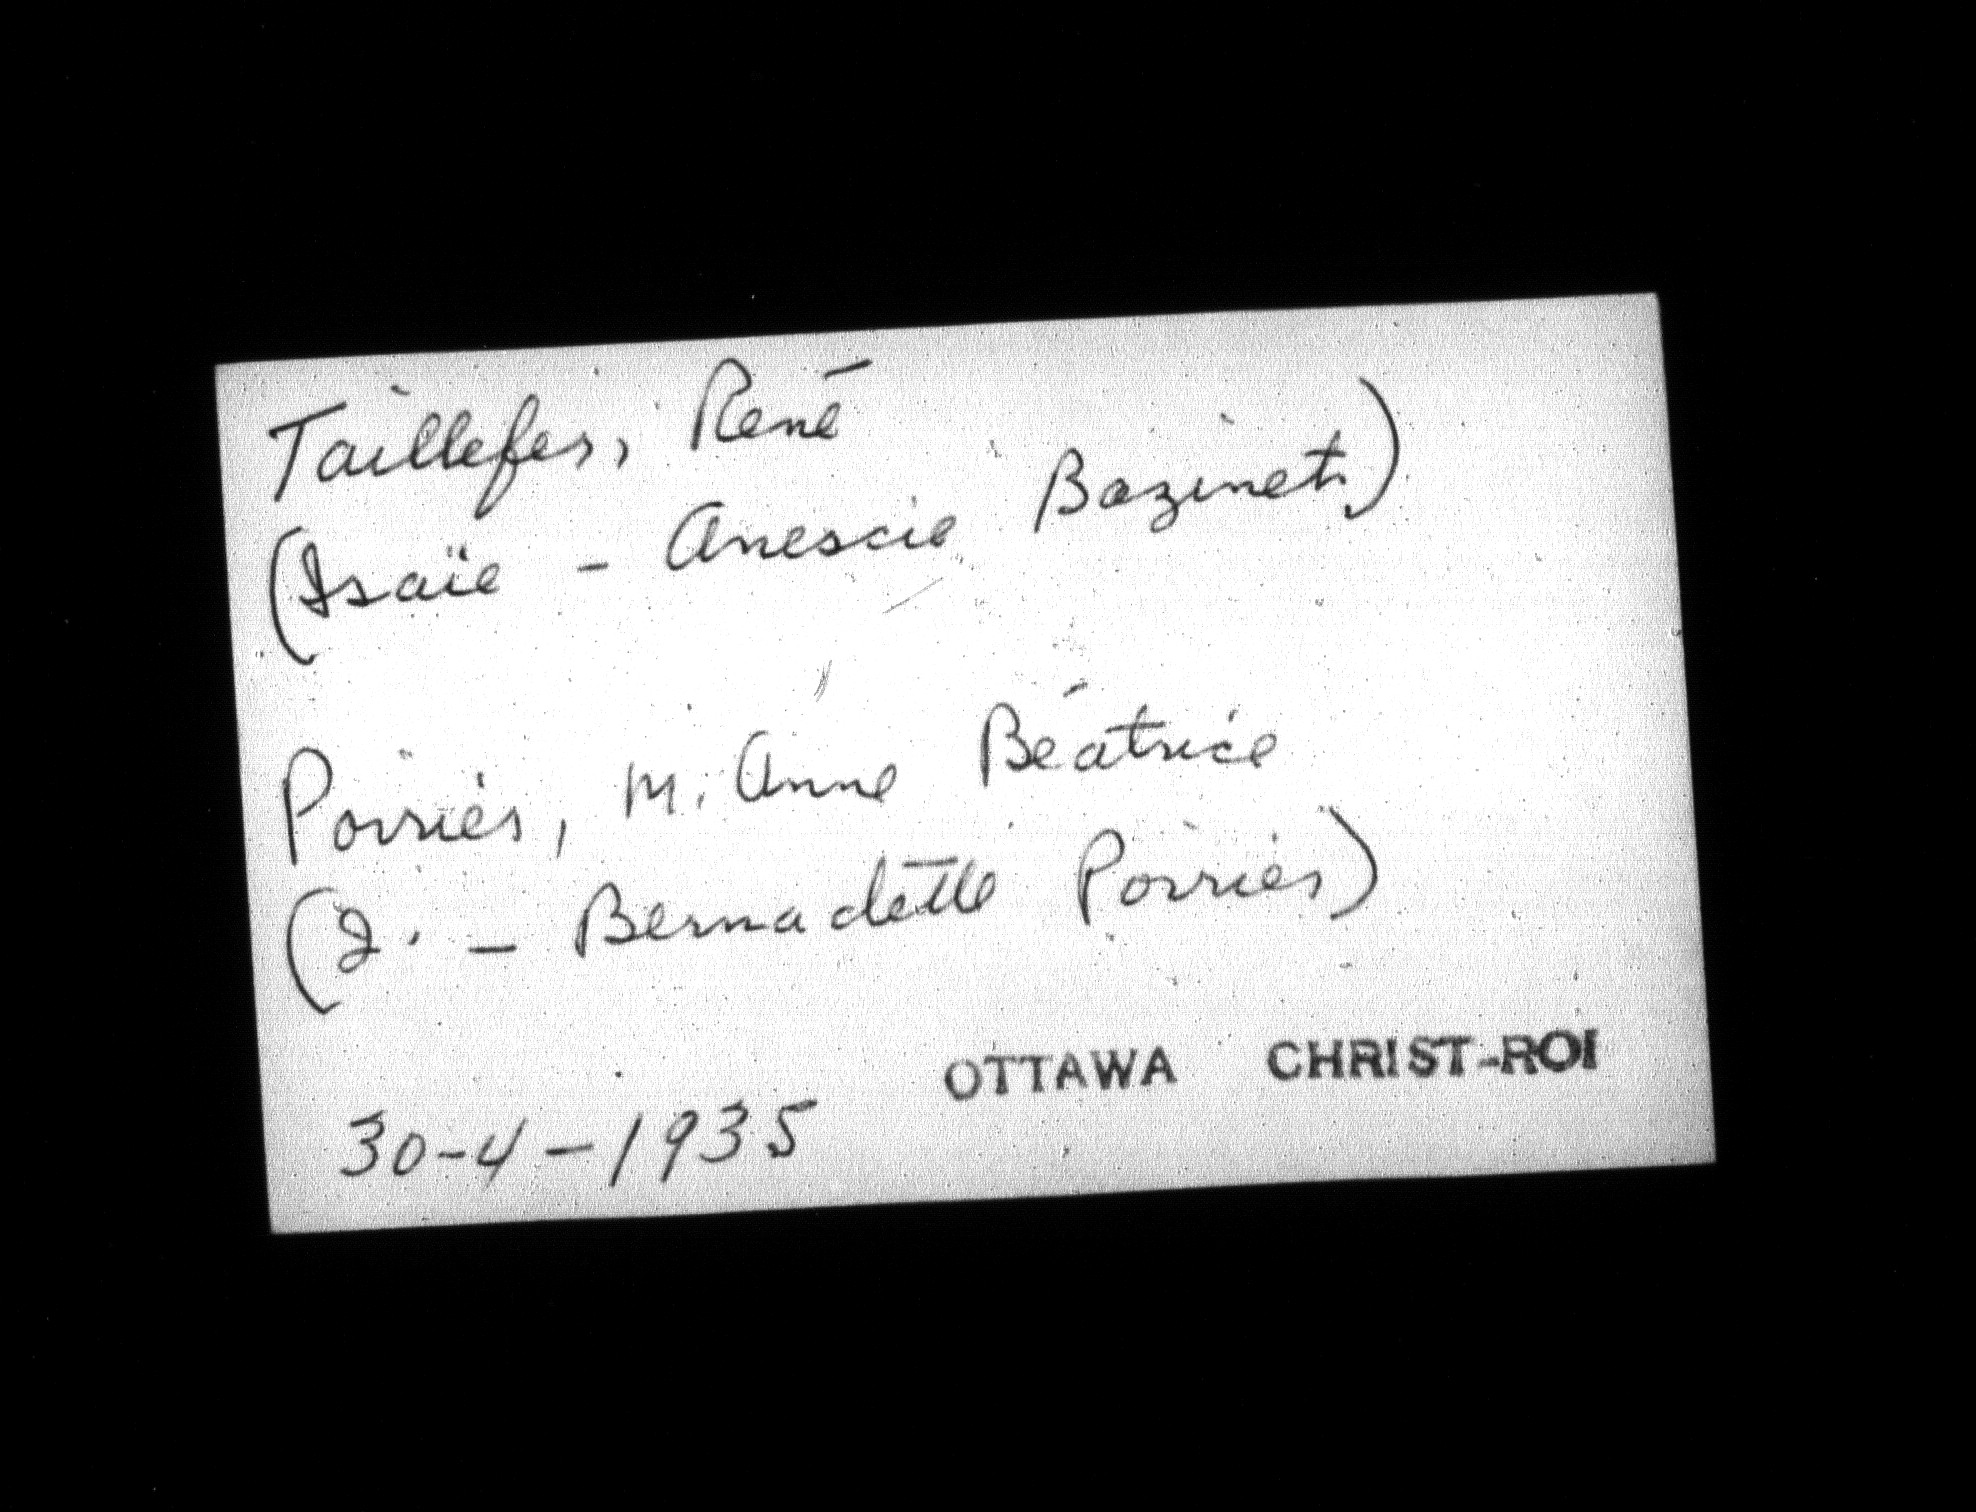 Taillefer, René
(Isaïe - Anescie Bazinet)
Poirier, M. Anne Béatrice
(I. - Bernadette Poirier)
OTTAWA CHRIST-ROI
30-4-1935